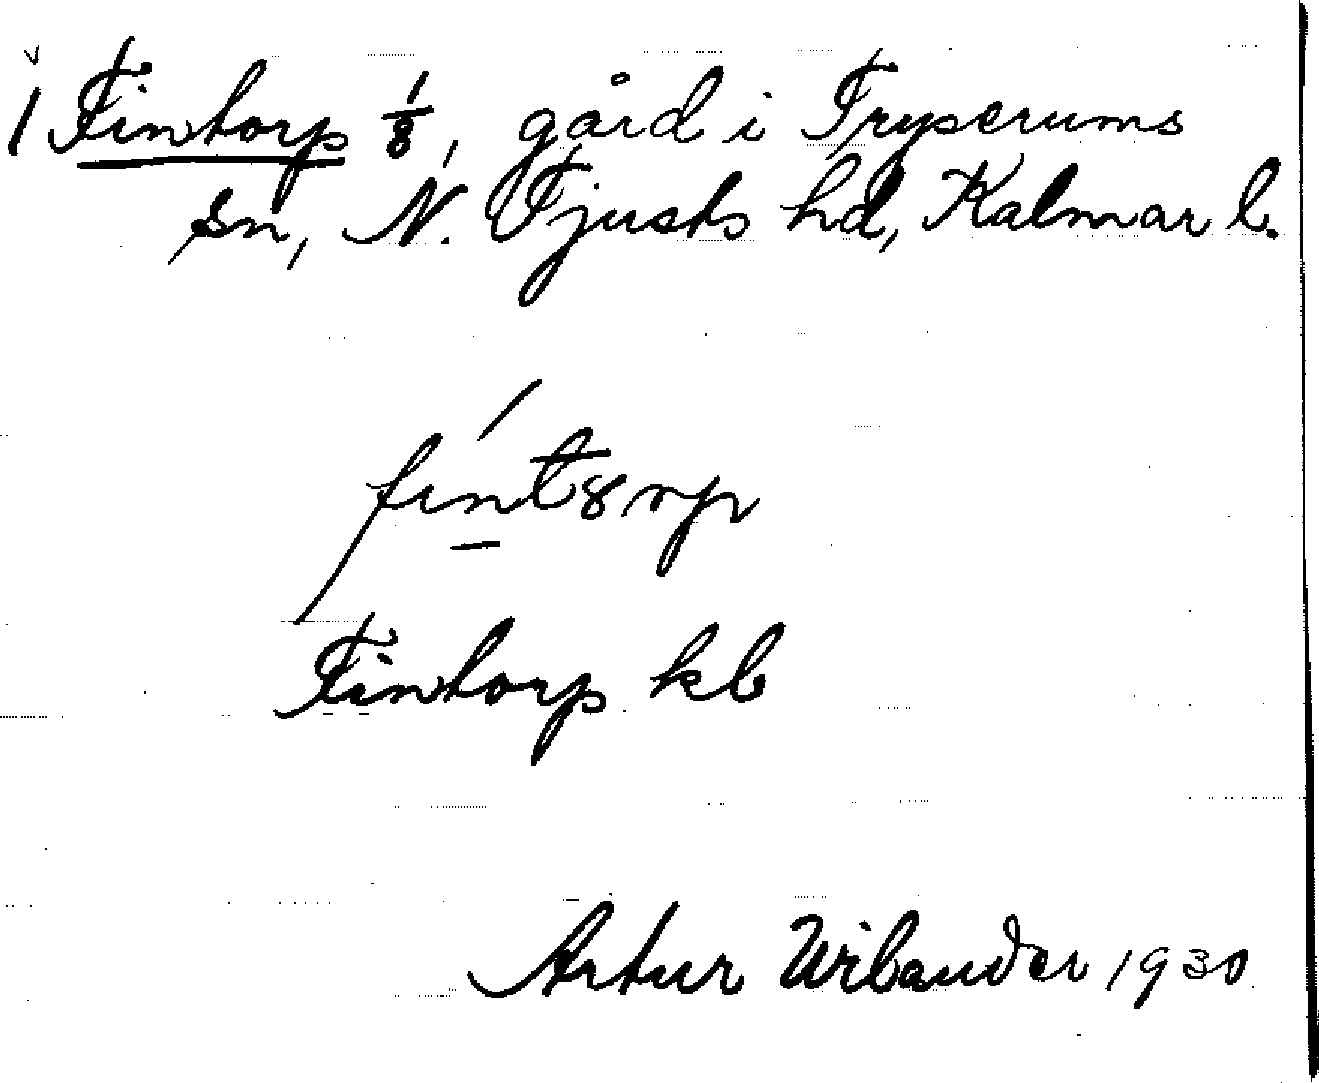 1 Fintorp 1/8, gård i Tryserums
sn, N. Tjusts hd, Kalmar l.
fint8rp
Fintorp kb
Artur Wilander 1930